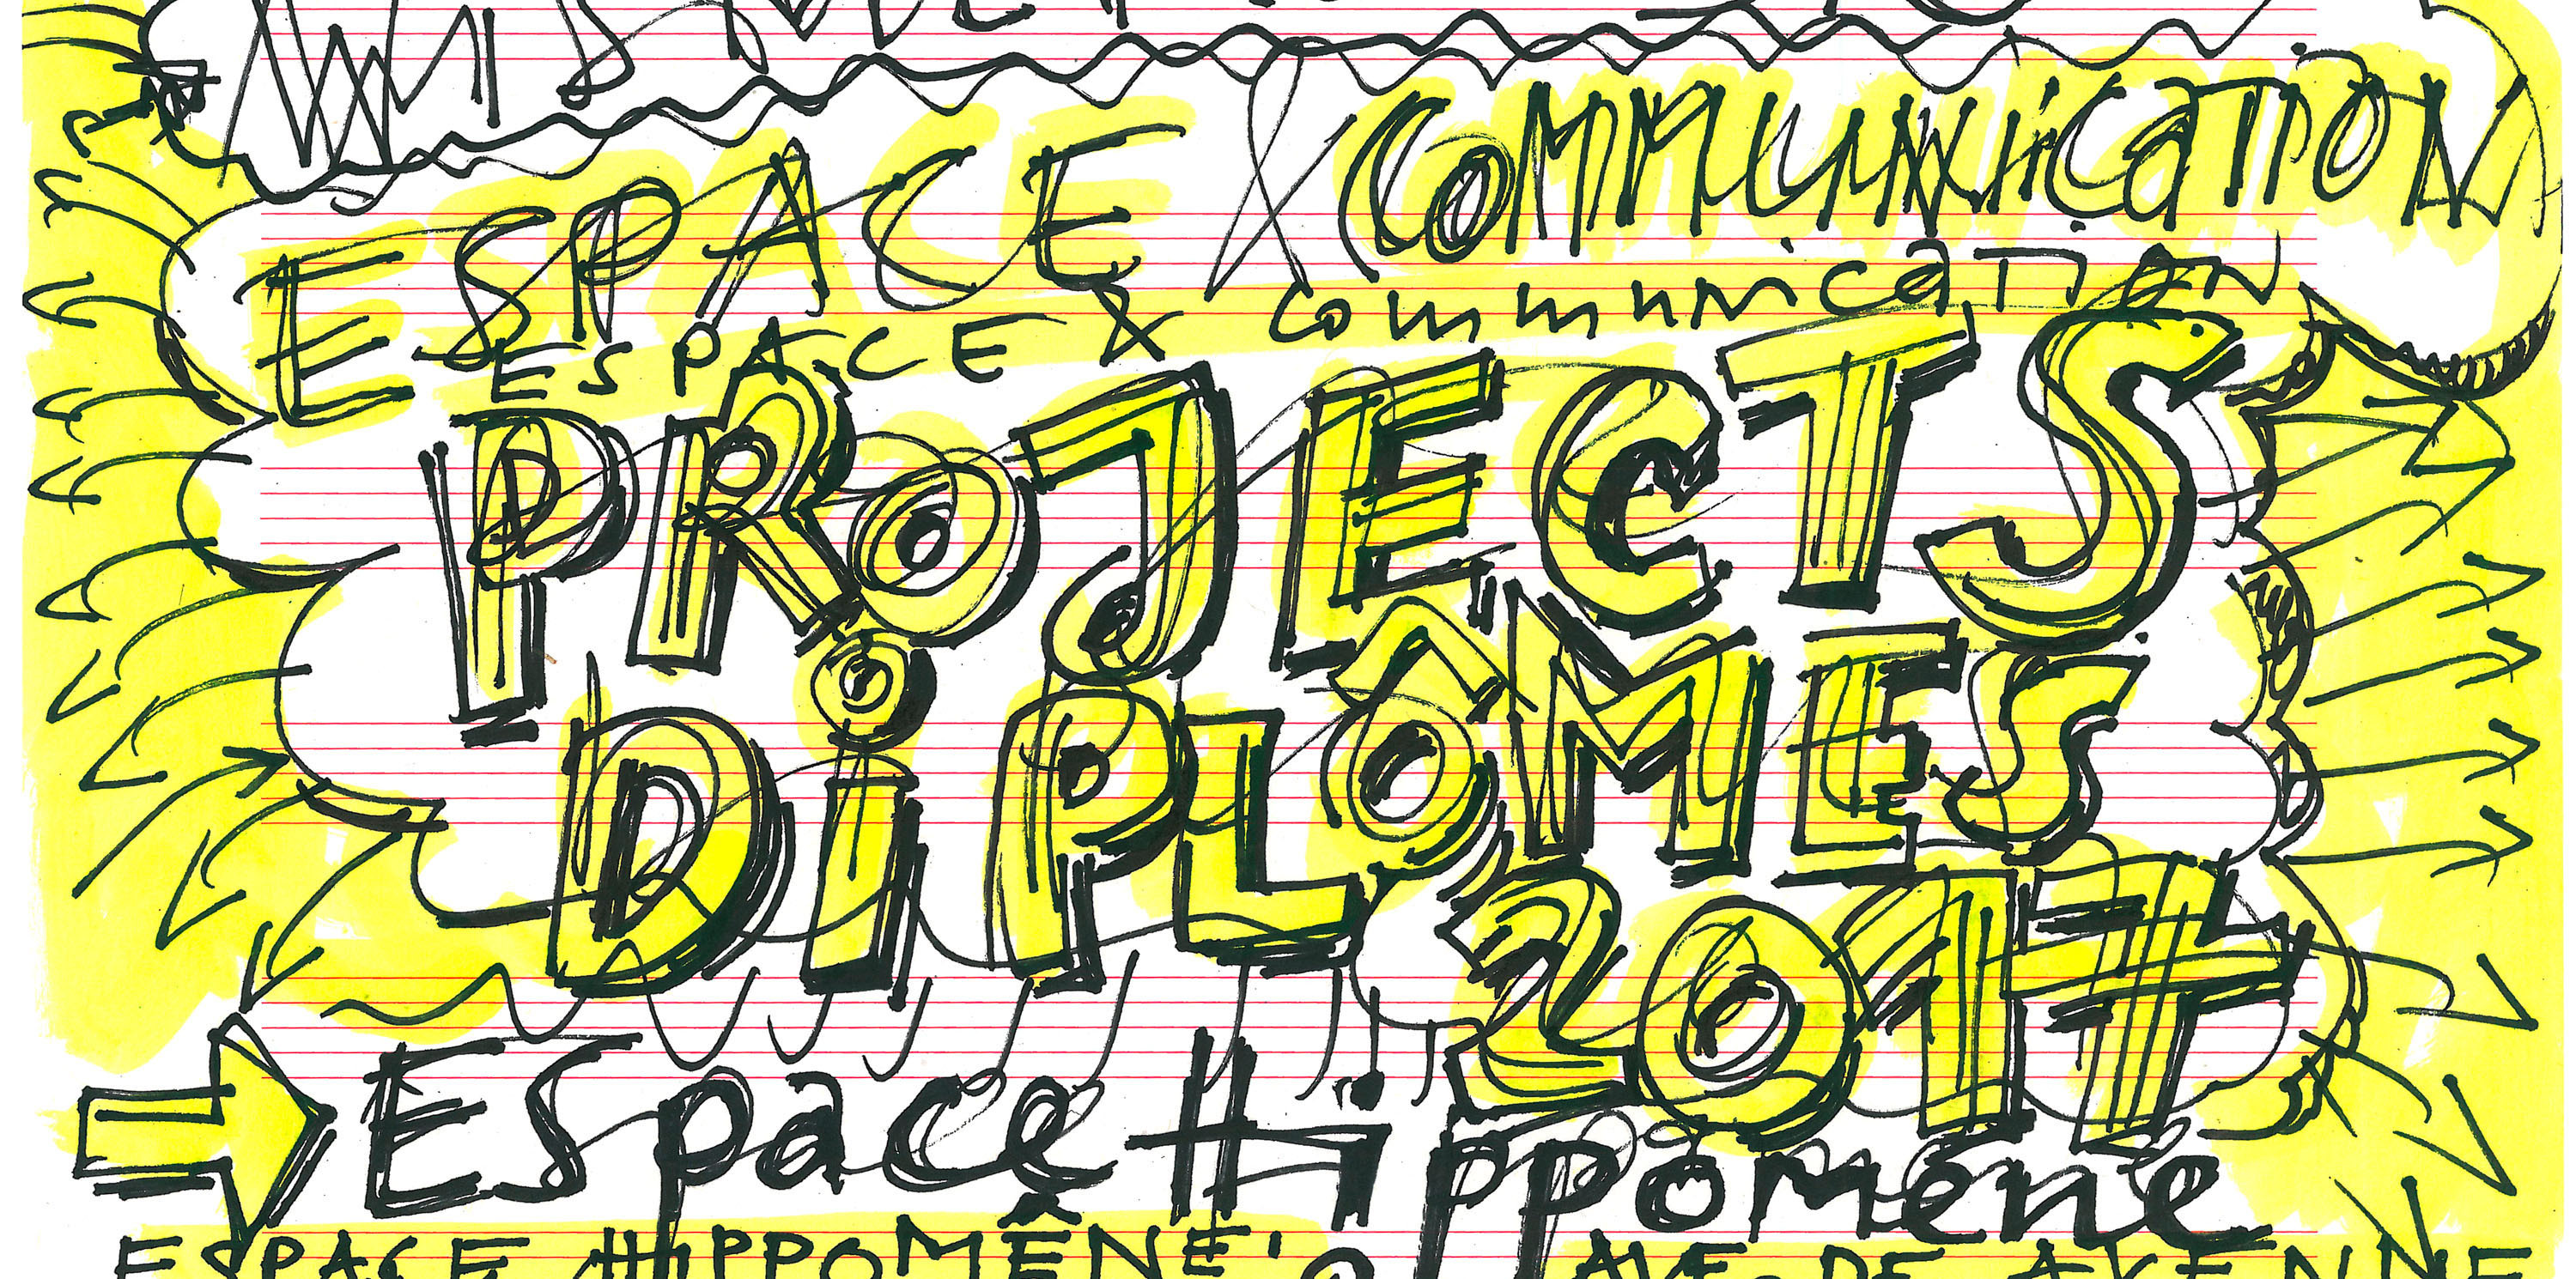 ESPACE & COMMUNiCaTiON
ESPACE & communicaTiON
PROJECTS
DiPLÔMES
2017
Espace Hippomène
ESPACE HiPPOMÊNE.
AVE. DE